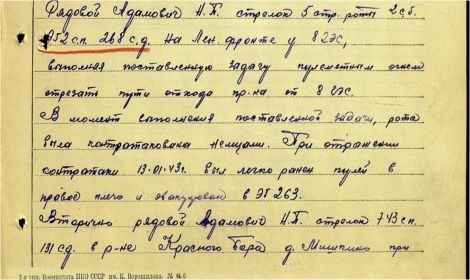 Рядовой Адамович Н.П. стрелок 5 стр. роты 2 с.б.
952 сп. 268 с.д. На Лен. фронте у 8 ГЭС,
выполняя поставленную задачу пулеметным огнем
отрезать пути отхода пр-ка от 8 ГЭС.
В момент выполнения поставленной задачи, рота
была контратакована немцами. При отражении
контратаки 13.01.43г. был легко ранен пулей в
правое плечо и эвакуирован в ЭГ 263.
Вторично рядовой Адамович Н.П. стрелок 743 сп.
131 сд. в р-не Красного Бора д. Мишкино при
2-я тип. Воениздата НКО СССР им. К. Ворошилова. №